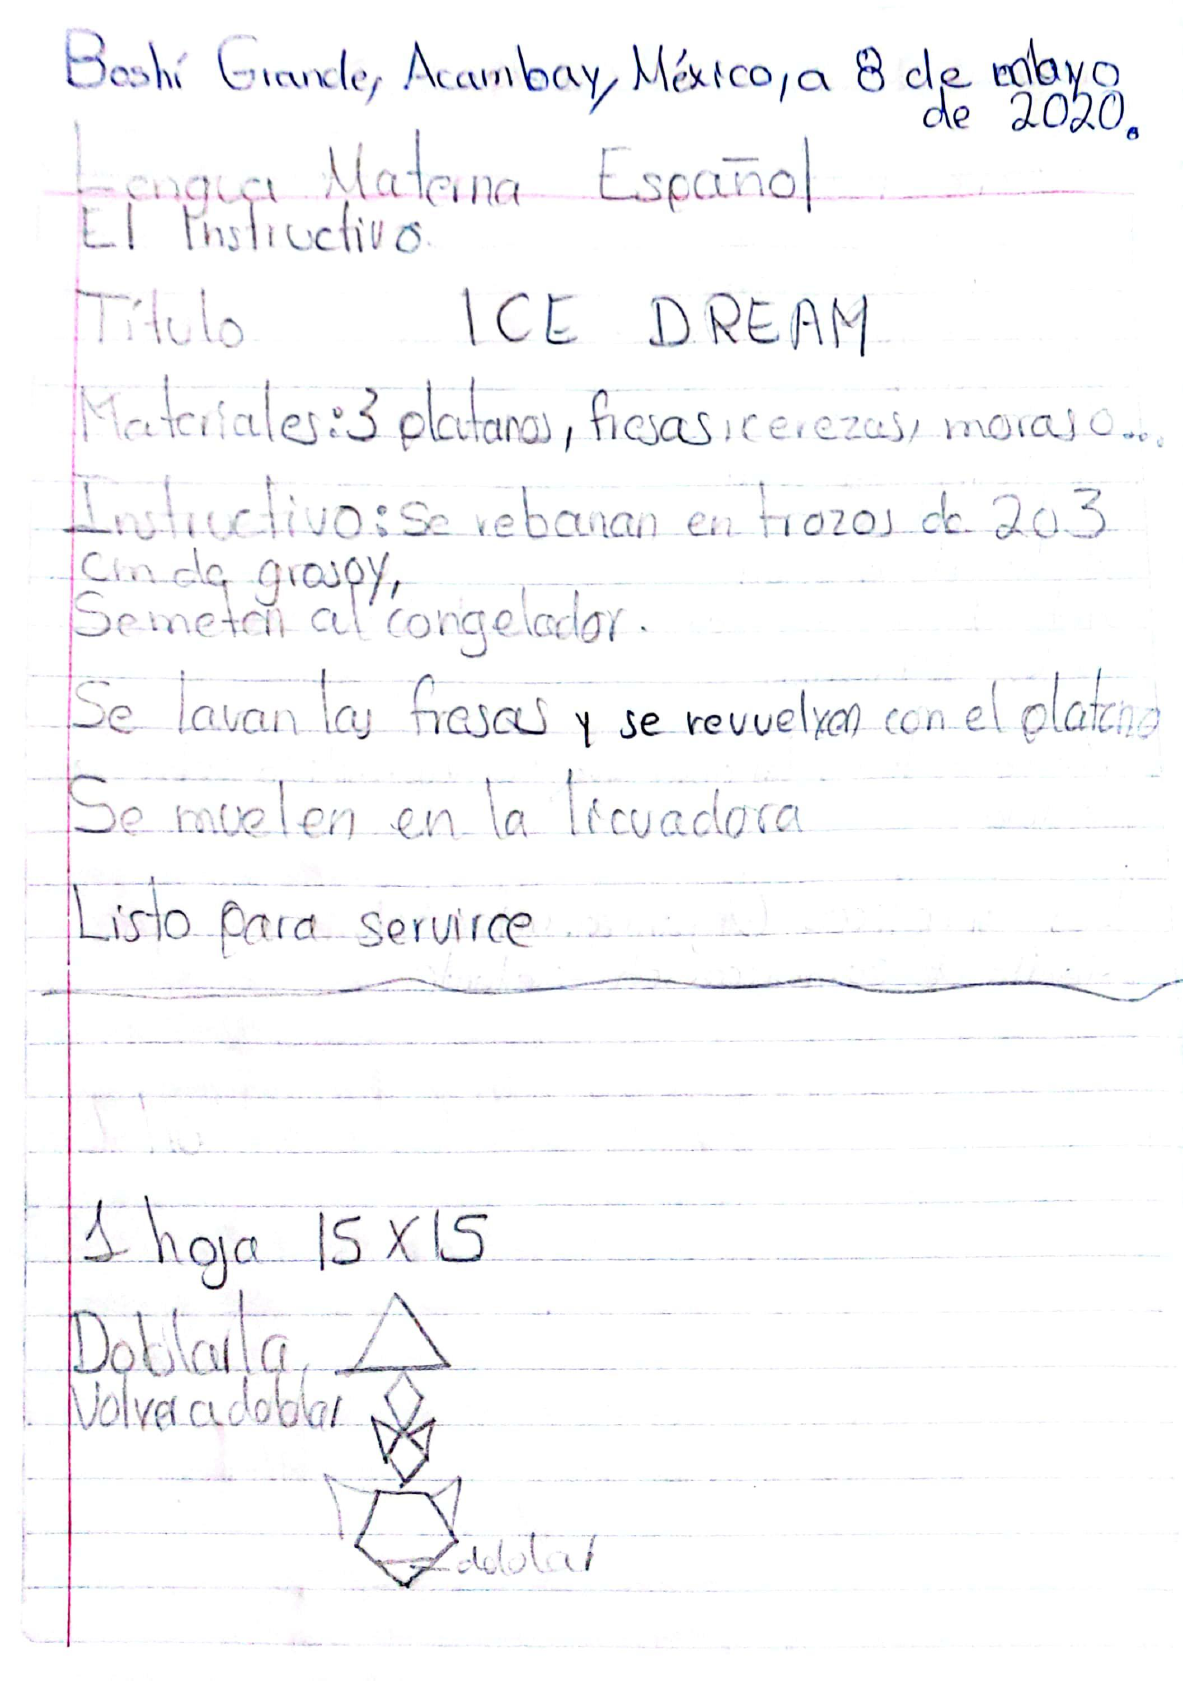 Boshí Grande, Acambay, México, a 8 de mayo
de 2020.
Lengua Materna Español
El Instructivo.
Título ICE DREAM
Materiales: 3 platanos, fresas, cerezas, moras o...
Instructivo: Se rebanan en trozos de 2 o 3
cm de grosoy,
Se meten al congelador.
Se lavan las fresas y se revuelven con el platano
Se muelen en la licuadora
Listo para servirce
1 hoja 15 X 15
Doblarla,
Volver a doblar
doblar